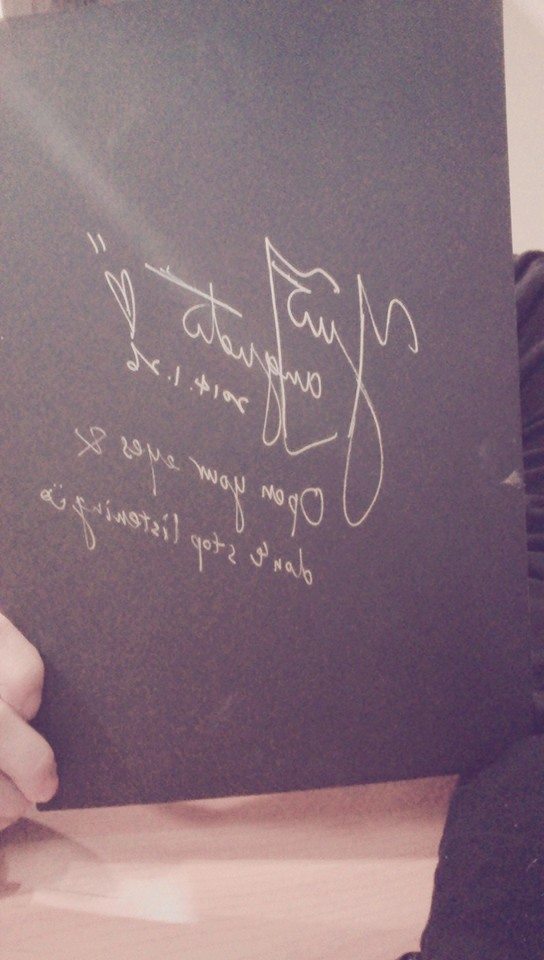 2014.1.26
Open your eyes &
don't stop listening